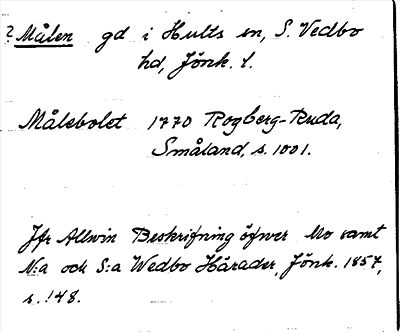 ? Målen gd i Hults sn, S. Vedbo
hd, Jönk. l.
Målebolet 1770 Rogberg-Ruda,
Småland, s. 1001.
Jfr Allvin Beskrifning öfver Mo samt
N:a och S:a Wedbo Härader, Jönk. 1857,
s. 148.